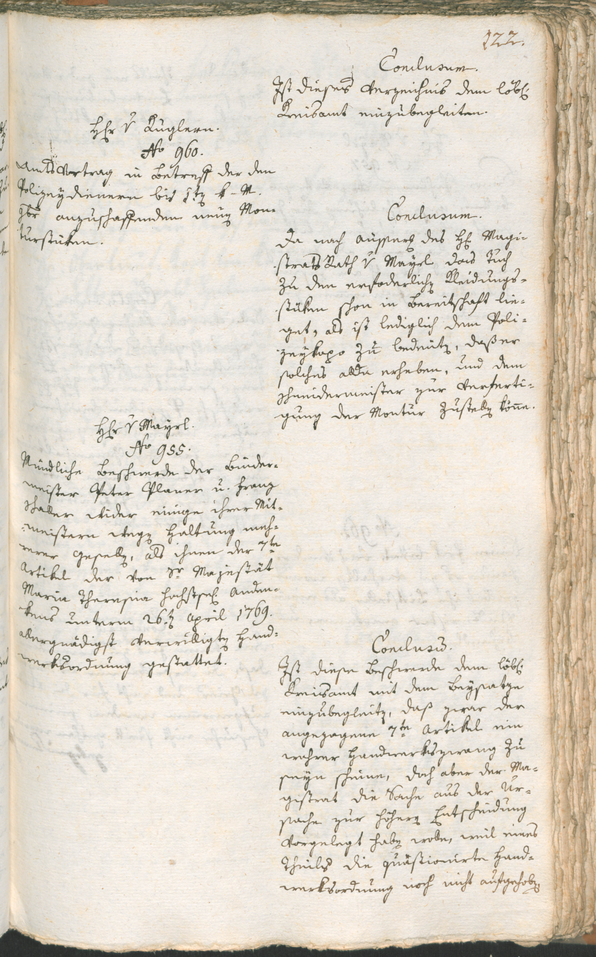 122.
Conclusum.
Ist dieses Verzeichnis dem löbl:
Kreisamt einzubegleiten.
Hr v Küglern.
No 960.
Amtsvortrag in Betreff der den
Polizeydienern bis
anzuschaffenden neuen Mon-
turstüken.
Conclusum.
Da nach Ausserg des H: Magi-
strats Rath v Mayrl, das Tuch
zu den erforderlichen Kleidungs-
stüken schon in Bereitschaft lie-
get, als ist lediglich dem Poli-
zeykapo zu bedeuten, daß er
solches alda erheben, und dem
Schneidermeister zur Verferti-
gung der Montur zustellen könne.
Hr v Mayrl.
No 955.
Mündliche Beschwerde der Binder-
meister Peter Planer u. Franz
Thaler wider einige ihrer Mit-
meistern wegen Haltung meh-
rerer Gesellen, als ihnen der 7te
Artikel der von Sr Majestät
Maria Theresia höchstsel: Anden-
kens unterm 26ten April 1769.
allergnädigst verwilligten Hand-
werksordnung gestattet.
Conclusum.
Ist diese Beschwerde dem löbl:
Kreisamt mit dem Beysatze
einzubegleiten, daß zwar der
angezogene 7te Artikel ein
wahrer Handwerkszwang zu
seyn scheine, doch aber der Ma-
gistrat die Sache aus der Ur-
sache zur höhern Entscheidung
vorgelegt haben wolle, weil eines
Theils die quästionirte Hand-
werksordnung noch nicht aufgehoben